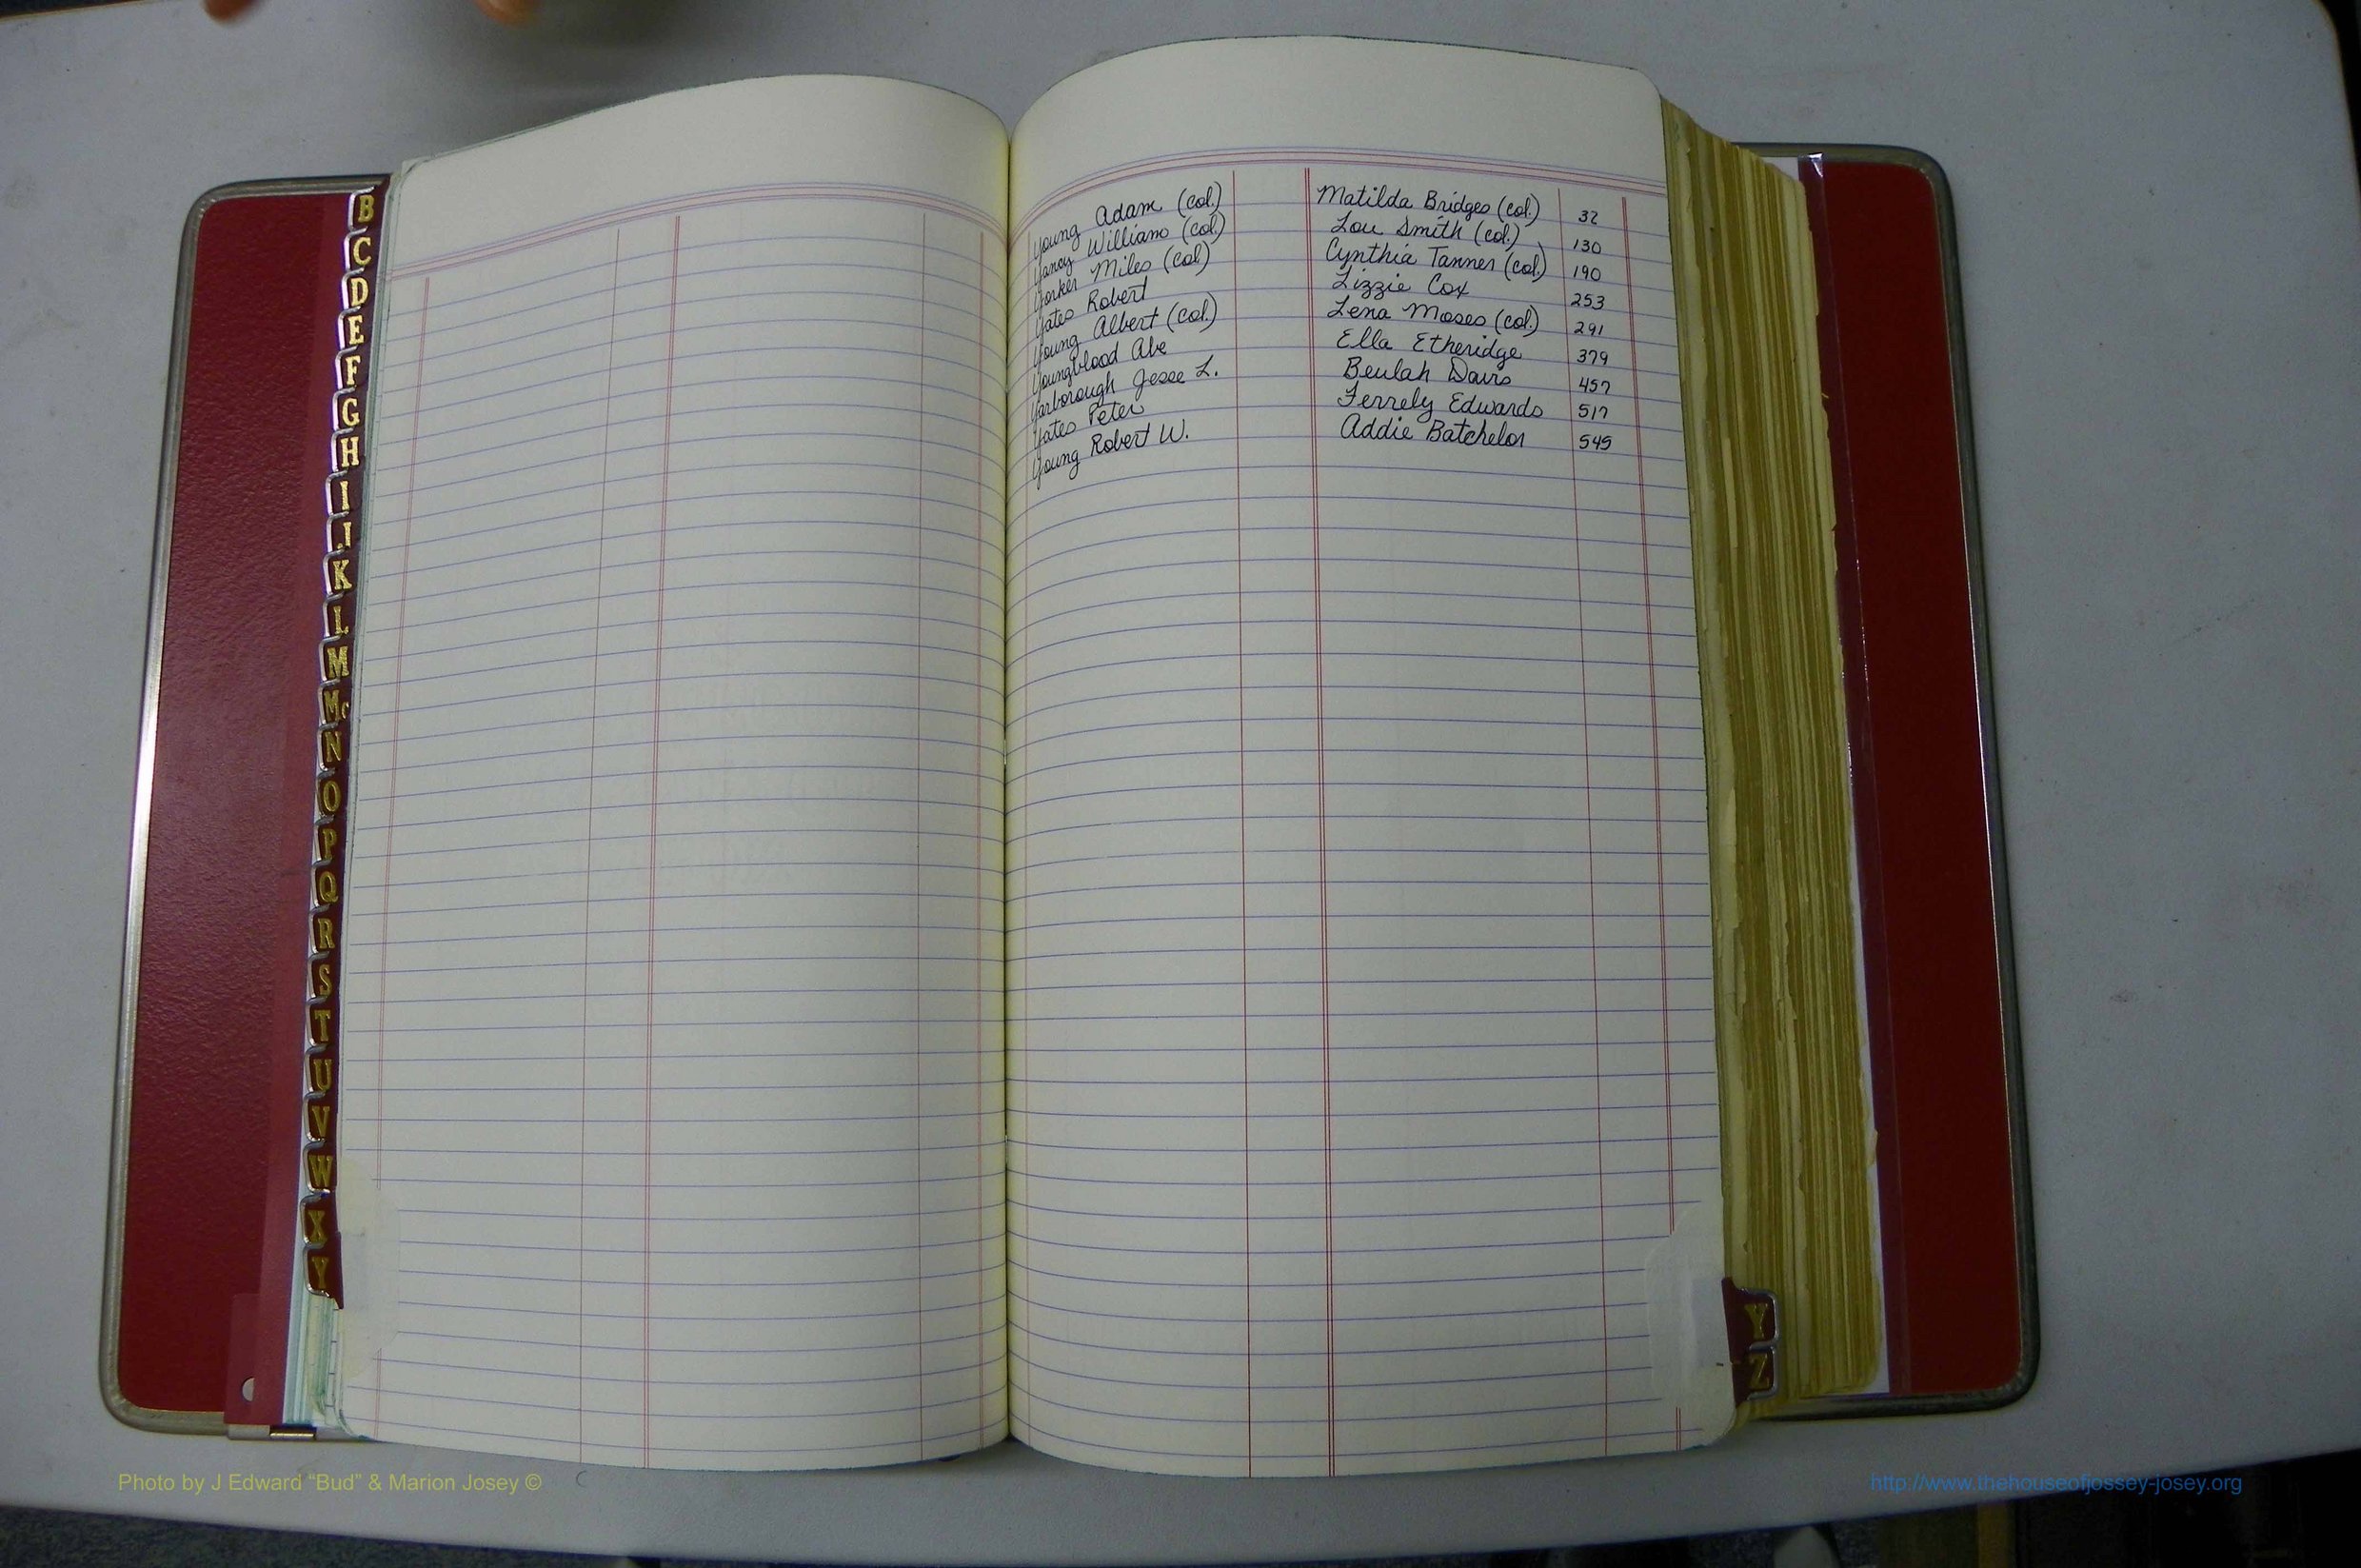 B
C
D
E
F
G
H
I
J
K
L
M
Mc
N
O
P
Q
R
S
T
U
V
W
X
Y
Young Adam (col.) Matilda Bridges (col.) 32
Yancy William (col) Lou Smith (col.) 130
Yorker Miles (col) Cynthia Tanner (col.) 190
Yates Robert Lizzie Cox 253
Young Albert (col.) Lena Moses (col.) 291
Youngblood Abe Ella Etheridge 379
Yarborough Jesse L. Beulah Davis 457
Yates Peter Ferrely Edwards 517
Young Robert W. Addie Batchelor 545
Y
Z
Photo by J Edward “Bud” & Marion Josey ©
http://www.thehouseofjossey-josey.org